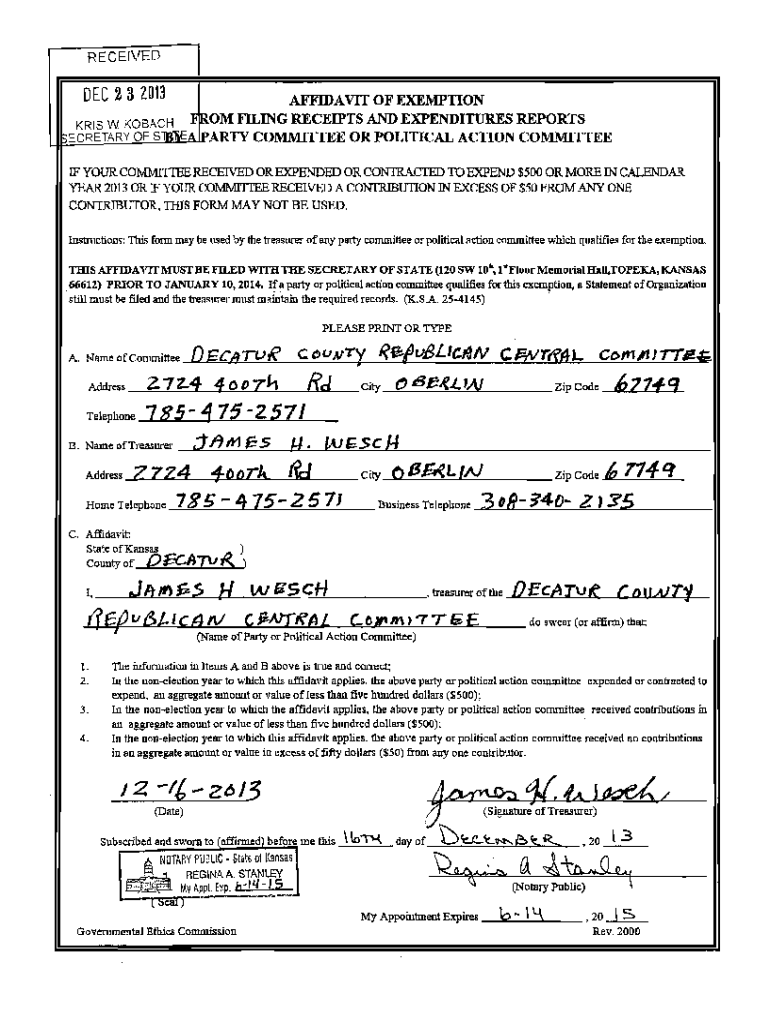 RECEIVED
DEC 23 2013
KRIS W. KOBACH
SECRETARY OF STATE
AFFIDAVIT OF EXEMPTION
FROM FILING RECEIPTS AND EXPENDITURES REPORTS
BY A PARTY COMMITTEE OR POLITICAL ACTION COMMITTEE
IF YOUR COMMITTEE RECEIVED OR EXPENDED OR CONTRACTED TO EXPEND $500 OR MORE IN CALENDAR
YEAR 2013 OR IF YOUR COMMITTEE RECEIVED A CONTRIBUTION IN EXCESS OF $50 FROM ANY ONE
CONTRIBUTOR, THIS FORM MAY NOT BE USED.
Instructions: This form may be used by the treasurer of any party committee or political action committee which qualifies for the exemption.
THIS AFFIDAVIT MUST BE FILED WITH THE SECRETARY OF STATE (120 SW 10th, 1st Floor Memorial Hall, TOPEKA, KANSAS
66612) PRIOR TO JANUARY 10, 2014. If a party or political action committee qualifies for this exemption, a Statement of Organization
still must be filed and the treasurer must maintain the required records. (K.S.A. 25-4145)
PLEASE PRINT OR TYPE
A. Name of Committee DECATUR COUNTY REPUBLICAN CENTRAL COMMITTEE
Address 2724 400Th Rd City OBERLIN Zip Code 67749
Telephone 785-475-2571
B. Name of Treasurer JAMES H. WESCH
Address 2724 400Th Rd City OBERLIN Zip Code 67749
Home Telephone 785-475-2571 Business Telephone 308-340-2135
C. Affidavit:
State of Kansas )
County of DECATUR )
I, JAMES H WESCH, treasurer of the DECATUR COUNTY
REPUBLICAN CENTRAL COMMITTEE do swear (or affirm) that:
(Name of Party or Political Action Committee)
1. The information in Items A and B above is true and correct;
2. In the non-election year to which this affidavit applies, the above party or political action committee expended or contracted to
expend, an aggregate amount or value of less than five hundred dollars ($500);
3. In the non-election year to which the affidavit applies, the above party or political action committee received contributions in
an aggregate amount or value of less than five hundred dollars ($500);
4. In the non-election year to which this affidavit applies, the above party or political action committee received no contributions
in an aggregate amount or value in excess of fifty dollars ($50) from any one contributor.
12-16-2013 James H. Wesch
(Date) (Signature of Treasurer)
Subscribed and sworn to (affirmed) before me this 16TH day of DECEMBER, 20 13
NOTARY PUBLIC - State of Kansas
REGINA A. STANLEY
My Appt. Exp. 6-14-15
Regina A Stanley
(Seal) (Notary Public)
My Appointment Expires 6-14, 20 15
Governmental Ethics Commission Rev. 2000